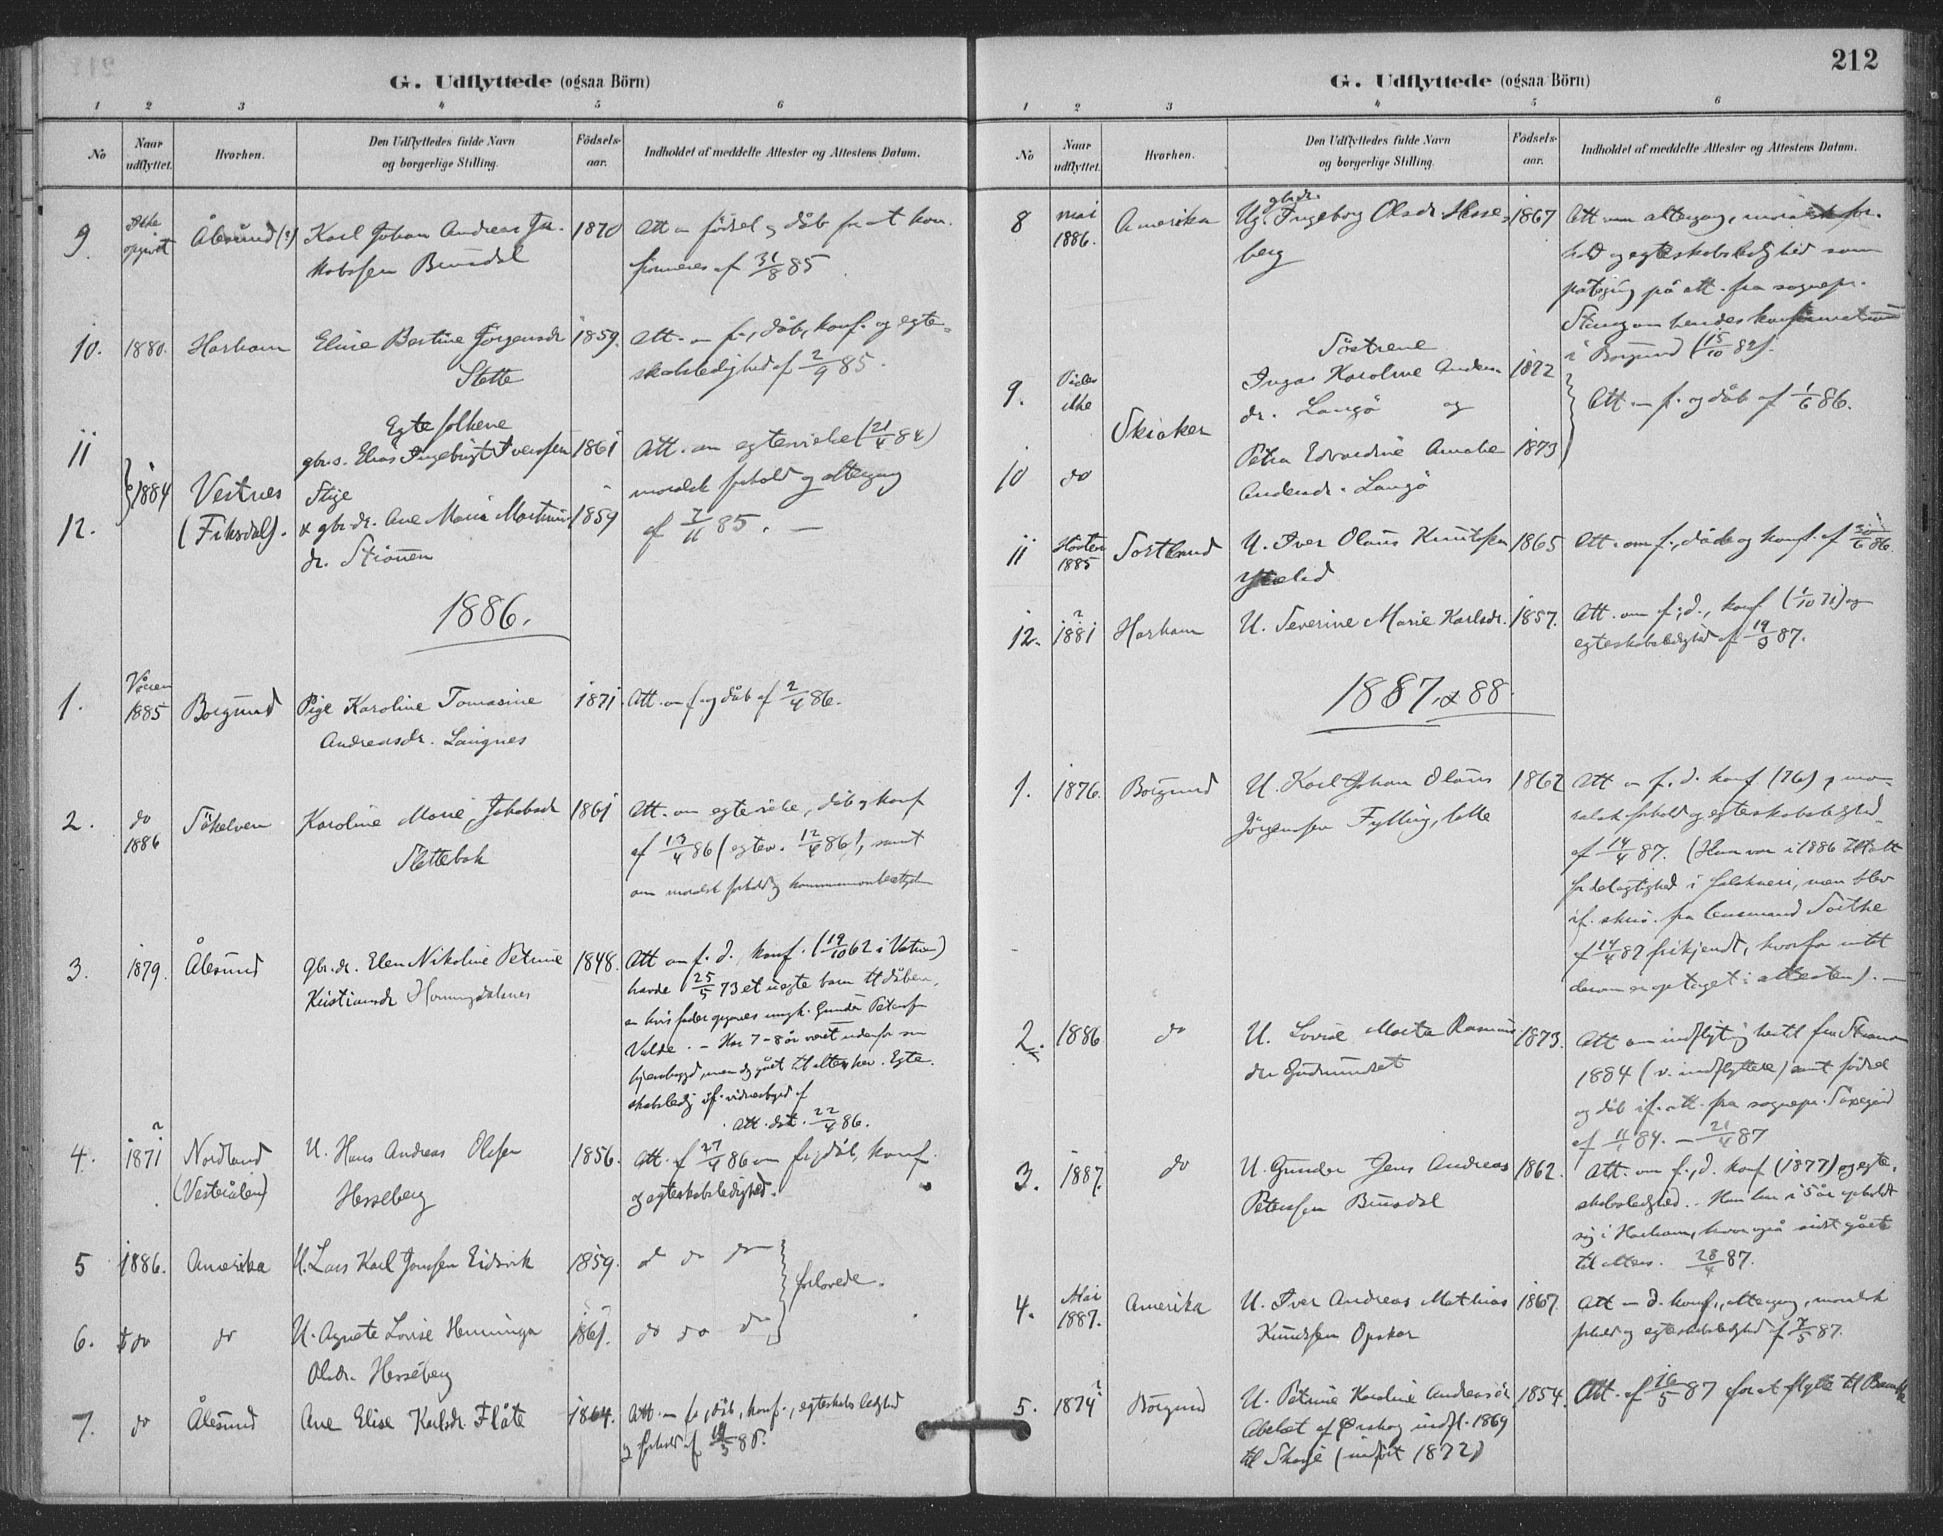 G. Udflyttede (ogsaa Börn)
1 2 3 4 5 6
No
Naar udflyttet.
Hvorhen.
Den Udflyttedes fulde Navn og borgerlige Stilling.
Födsels-aar.
Indholdet af meddelte Attester og Attestens Datum.
9. Ikke opgivet Ålesund (?) Karl Johan Andreas Ja- 1870 Att. om födsel og dåb for at kon-
kobssen Brusdal firmeres af 31/8 85.
10. 1880. Harham Eline Bertine Jörgensdr 1859. Att. om f., dåb, konf. og egte-
Slette skabsledighed af 2/9 85.
Egtefolkene
11 gbrs. Elias Ingebrigt Iverssen 1861 Att. om egtevielse (21/4 84)
1884 Vestnes Stige moralsk forhold og altergang
12. (Fiksdal). & gbr.dr. Ane Maria Martinus- 1859 af 7/11 85. —
dr.
1886.
1. Våren 1885 Borgund Pige Karoline Tomasine 1871. Att. om f. og dåb af 2/4 86.
Andreasdr. Langnes
2. do 1886 Sökelven Karoline Marie Jakobsdr 1861 Att. om egtevielse, dåb og konf
Slettebak af 13/4 86 (egtev. 12/4 86), samt
om moralsk forhold og
3. 1879. Ålesund gbr.dr. Elen Nikoline Petrine 1848. Att om f. d., konf. (19/10 62 i Vatne)
Kristiansdr havde 25/5 73 et uegte barn til dåben,
en hvis fader opgives ungk. Gunder Peterssen
Valde. — Har 7-8 år været udenfor sin
hjembygd, men dog gået til alters her. Egte-
skabsledig if. vidnesbyrd af
Att. dat. 22/4 86.
4. 1871 ? Nordland U. Hans Andreas Olssen 1856. Att. af 27/4 86 om f., dåb, konf.
(Vesterålen) Hesseberg og egteskabsledighed.
5 1886. Amerika U. Lars Karl Jonssen Eidsvik 1859. do do do
forlovede.
6. do do U. Agnete Lovise Henninga 1861. do do do
Olsdr. Hesseberg
7. do Ålesund Ane Elise Karlsdr. Flåte 1864. Att. om f., dåb, konf., egteskabsledighed
og forhold af
212
G. Udflyttede (ogsaa Börn)
1 2 3 4 5 6
No
Naar udflyttet.
Hvorhen.
Den Udflyttedes fulde Navn og borgerlige Stilling.
Födsels-aar.
Indholdet af meddelte Attester og Attestens Datum.
8 mai 1886. Amerika gbrdr. Ingeborg Olsdr. Hesse- 1867 Att om altergang, moralsk for-
berg hold og egteskabsledighed som
påtegning på att. fra sognepr.
om hendes konfirmation
i Borgund (15/10 82).
Söstrene
9. ikke Inga Karoline Anders- 1872
dr. Langö og Att. om f. og dåb af 1/6 86.
Skieker
10 do Petra Edvardine Amalie 1873
Andersdr. Langö
11 Hösten 1885 Sortland U. Iver Olaus Knutssen 1865 Att. om f., dåb og konf. af 30/6 86.
12. 1881 ? Harham U. Severine Marie Karlsdr. 1857. Att. om f., d., konf (1/10 71) og
egteskabsledighed af 19/3 87.
1887 & 88.
1. 1876. Borgund U. Karl Johan Olaus 1862 Att om f. d. konf. (76), mo-
Jörgenssen Fylling, lille ralsk forhold og egteskabsledighed
af 14/4 87. (Han var i 1886 tiltalt
for delagtighed i falskneri, men blev
if. skriv. fra lensmand
af 14/4 87 frikjendt, hvorfor intet
derom er optaget i attesten). —
2. 1886 do U. Lovise Marta Rasmus- 1873. Att om indflytning hertil fra
dr Gudmundset 1884 (v. indflyttede) samt födsel
og dåb if. att. fra sognepr.
af 84. — 21/4 87
3. 1887. do U. Gunder Jens Andreas 1862. Att. om f., d. konf (1877) og egte-
Peterssen Brusdal skabsledighed. Han har i 5 år opholdt
sig i Harham, hvor også sidst gået
til alters. 28/4 87.
4. Mai 1887. Amerika U. Iver Andreas Mathias 1867. Att om d. konf., altergang, moralsk
Knudssen Opskar forhold og egteskabsledighed af 7/5 87.
5. 1874 ? Borgund U. Petrine Karoline Andreasdr 1854. Att. af 16/5 87 for at flytte til
Abelset af Örskog indfl. 1869
til Skodje (indfört 1872)